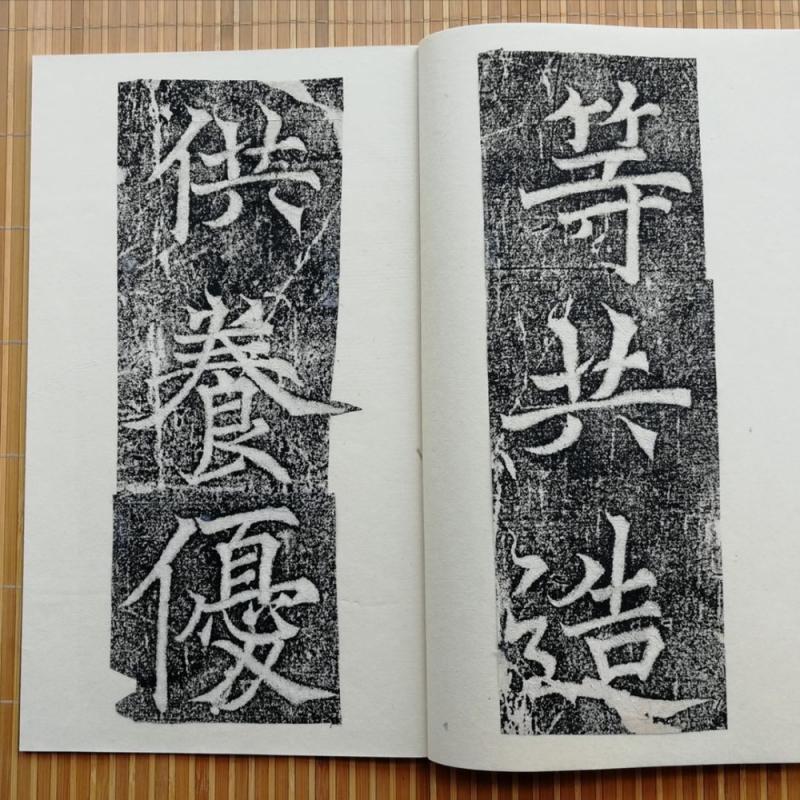 等共造
供養優